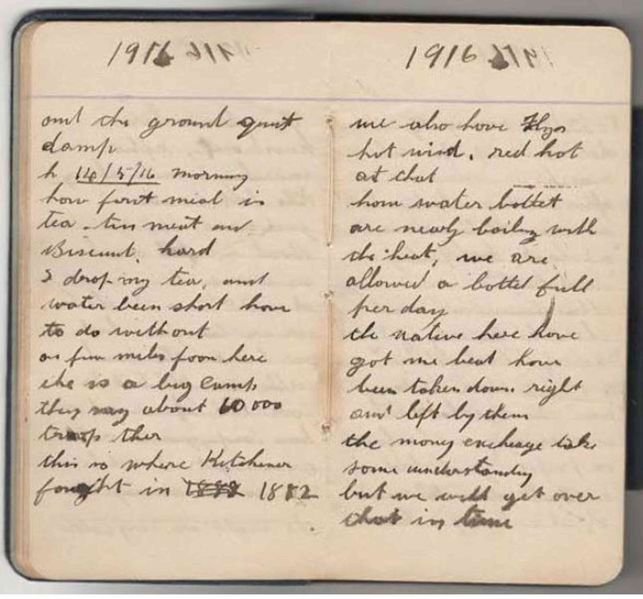 1916
and the ground quit
damp
h 14/5/16 morning
how first meal is
tea. tin meat and
Biscuit, hard
I drop my tea, and
water been short have
to do without
a few miles from here
the is a big Camp
they say about 60000
troop ther
this is where Kitchener
fought in 1888 1882
1916
we also have Flys
hot wind, red hot
at that
how water bottel
are nearly boiling with
the heat, we are
allowed a bottel full
per day
the native here have
got me beat have
been taken down right
and left by them
the money exchange take
some understanding
but we will get over
that in time